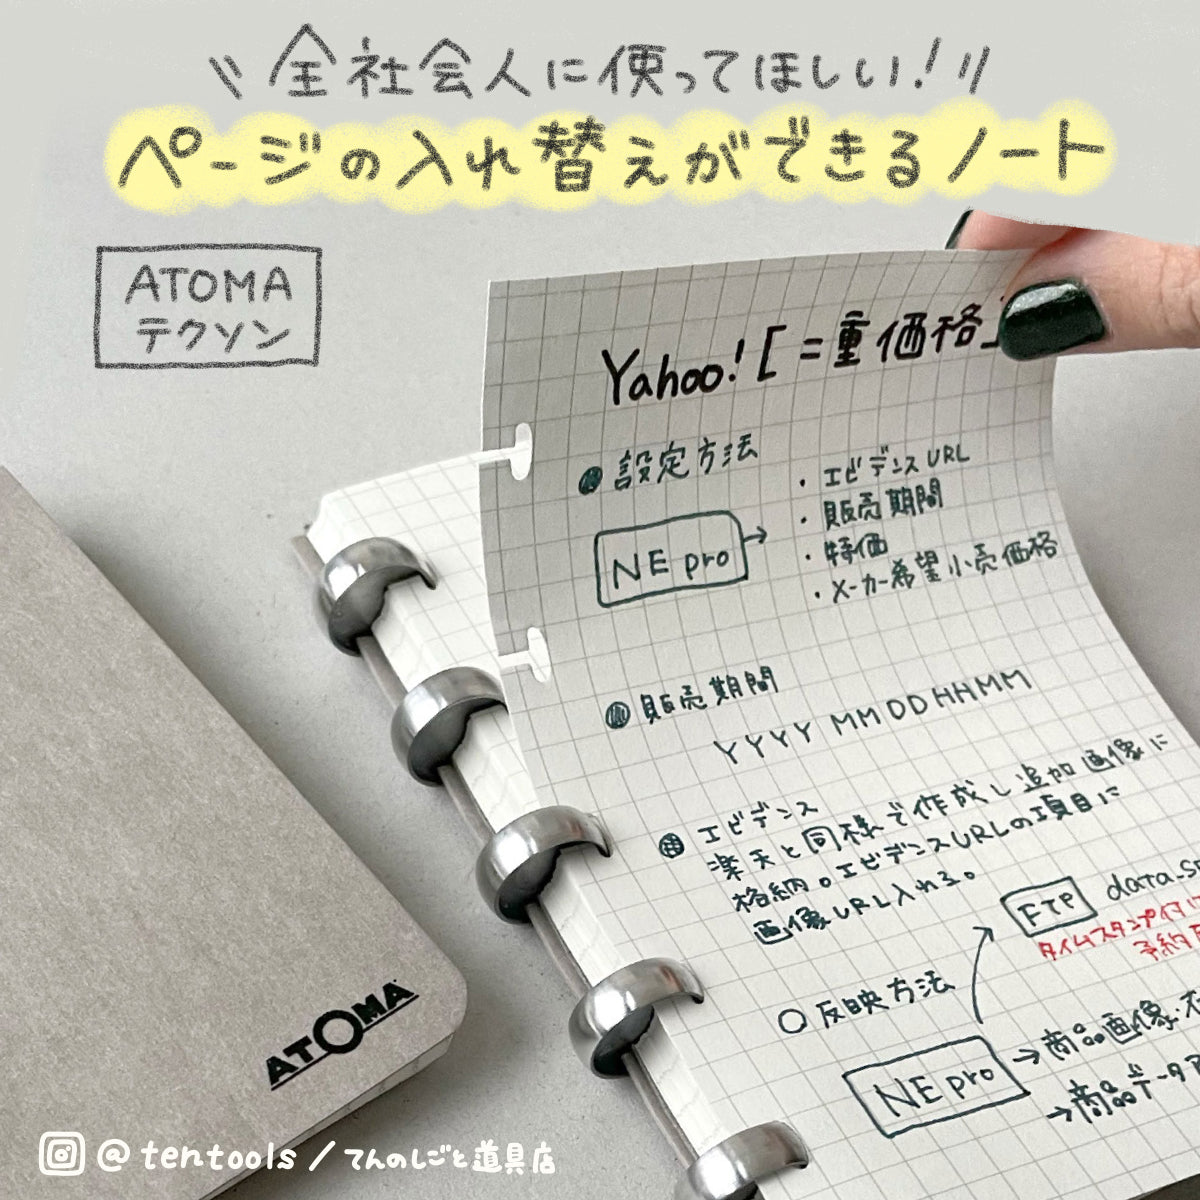 全社会人に使ってほしい!
ページの入れ替えができるノート
ATOMA
テクソン
Yahoo! [二重価格]
設定方法
NE pro →
・エビデンスURL
・販売期間
・特価
・メーカー希望小売価格
販売期間
YYYY MM DD HH MM
エビデンス
楽天と同様で作成し追加画像に
格納。エビデンスURLの項目に
画像URL入れる。
FTP data.s
タイムスタンプ付い
予約
○ 反映方法
NE pro
→ 商品画像・
→ 商品データ
ATOMA
@tentools / てんのしごと道具店